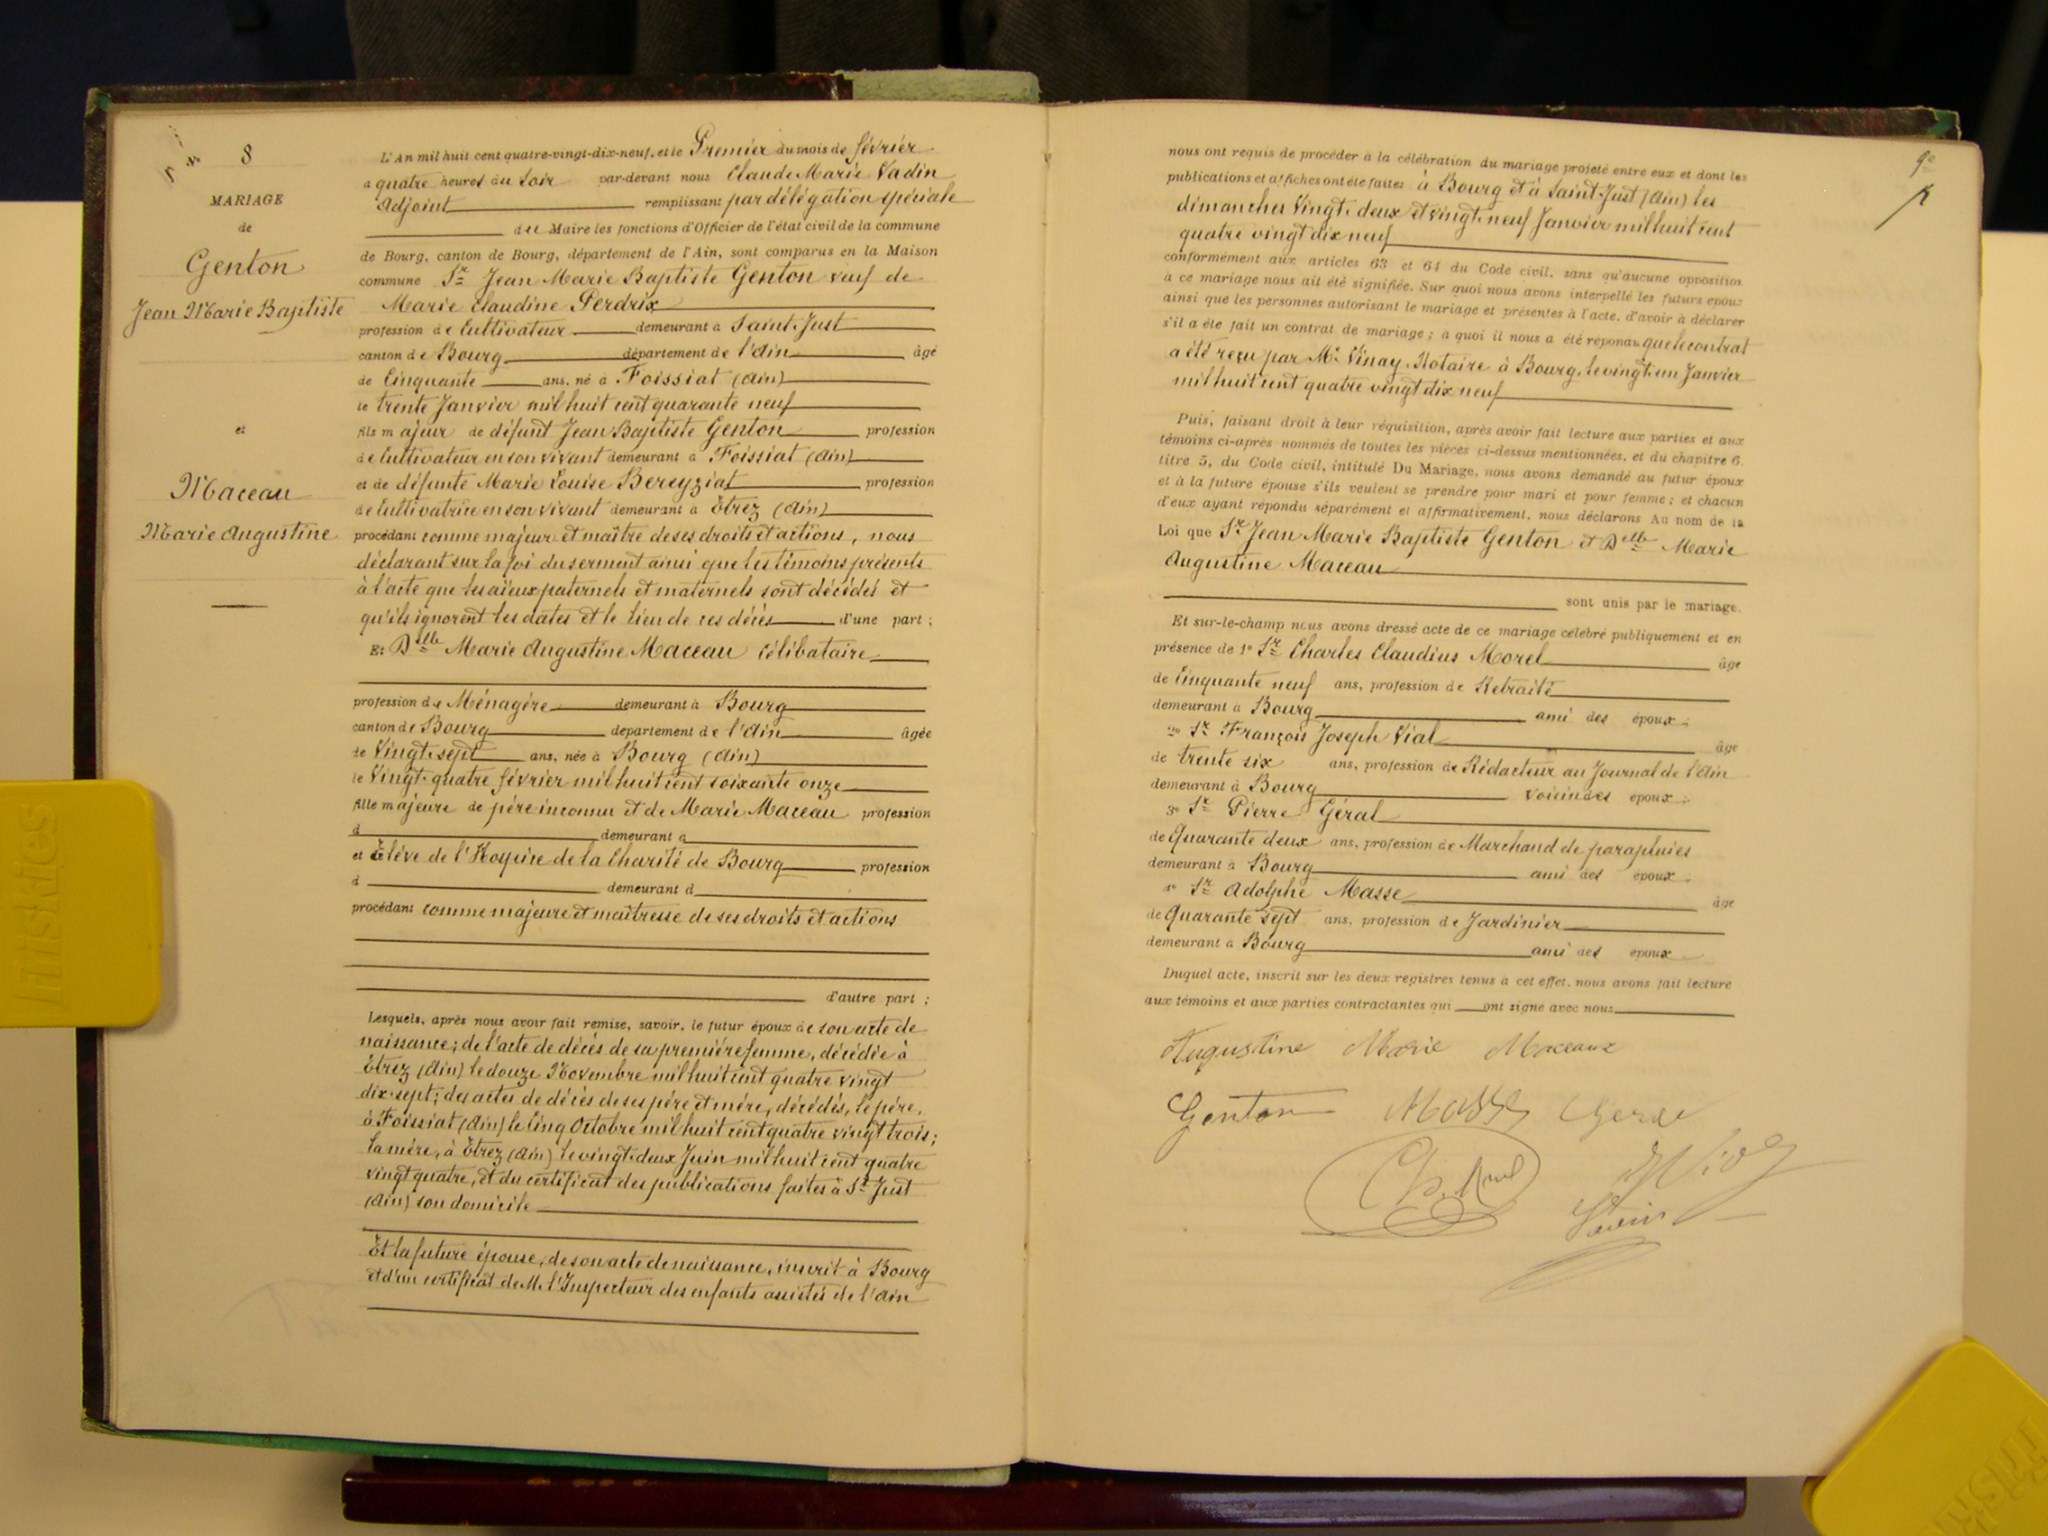 N° 8
MARIAGE
de
Genton
Jean Marie Baptiste
et
Maceau
Marie Augustine
L'An mil huit cent quatre-vingt-dix-neuf, et le Premier du mois de février
a quatre heures du soir par-devant nous Claude Marie Vadin
Adjoint remplissant par délégation spéciale
du Maire les fonctions d'Officier de l'état civil de la commune
de Bourg, canton de Bourg, département de l'Ain, sont comparus en la Maison
commune Sr Jean Marie Baptiste Genton veuf de
Marie Claudine Perdrix
profession de Cultivateur demeurant à Saint-Just
canton de Bourg département de l'Ain âgé
de Cinquante ans, né à Foissiat (Ain)
le trente Janvier mil huit cent quarante neuf
fils majeur de défunt Jean Baptiste Genton profession
de Cultivateur en son vivant demeurant à Foissiat (Ain)
et de défunte Marie Louise Bereyziat profession
de Cultivatrice en son vivant demeurant à Etrez (Ain)
procédant comme majeur et maître de ses droits et actions, nous
déclarant sur la foi du serment ainsi que les témoins présents
à l'acte que les aïeux paternels et maternels sont décédés et
qu'ils ignorent les dates et le lieu de ces décès d'une part ;
Et Delle Marie Augustine Maceau célibataire
profession de Ménagère demeurant à Bourg
canton de Bourg département de l'Ain âgée
de Vingt-sept ans, née à Bourg (Ain)
le Vingt-quatre février mil huit cent soixante onze
fille majeure de père inconnu et de Marie Maceau profession
d demeurant a
et Elève de l'Hospice de la Charité de Bourg profession
d demeurant d
procédant comme majeure et maîtresse de ses droits et actions
d'autre part ;
Lesquels, après nous avoir fait remise, savoir, le futur époux de son acte de
naissance ; de l'acte de décès de sa première femme, décédée à
Etrez (Ain) le douze Novembre mil huit cent quatre vingt
dix-sept ; des actes de décès de ses père et mère, décédés, le père,
à Foissiat (Ain) le Cinq Octobre mil huit cent quatre vingt trois ;
la mère, à Etrez (Ain) le vingt-deux Juin mil huit cent quatre
vingt quatre, et du certificat des publications faites à St Just
(Ain) son domicile
Et la future épouse, de son acte de naissance, inscrit à Bourg
et d'un certificat de M. l'Inspecteur des enfants assistés de l'Ain
nous ont requis de procéder à la célébration du mariage projeté entre eux et dont les
publications et affiches ont été faites à Bourg et à Saint-Just (Ain) les
dimanches Vingt-deux et vingt-neuf Janvier mil huit cent
quatre vingt dix neuf
conformément aux articles 63 et 64 du Code civil, sans qu'aucune opposition
à ce mariage nous ait été signifiée. Sur quoi nous avons interpellé les futurs époux
ainsi que les personnes autorisant le mariage et présentes à l'acte, d'avoir à déclarer
s'il a été fait un contrat de mariage ; à quoi il nous a été répondu que le contrat
a été reçu par Me Vinay, Notaire à Bourg, le vingt-un Janvier
mil huit cent quatre vingt dix neuf
Puis, faisant droit à leur réquisition, après avoir fait lecture aux parties et aux
témoins ci-après nommés de toutes les pièces ci-dessus mentionnées, et du chapitre 6,
titre 5, du Code civil, intitulé Du Mariage, nous avons demandé au futur époux
et à la future épouse s'ils veulent se prendre pour mari et pour femme ; et chacun
d'eux ayant répondu séparément et affirmativement, nous déclarons Au nom de la
Loi que Sr Jean Marie Baptiste Genton et Delle Marie
Augustine Maceau
sont unis par le mariage.
Et sur-le-champ nous avons dressé acte de ce mariage célébré publiquement et en
présence de 1° Sr Charles Claudius Morel âgé
de Cinquante neuf ans, profession de Retraité
demeurant à Bourg ami des époux ;
2° Sr François Joseph Vial âgé
de trente six ans, profession de Rédacteur au Journal de l'Ain
demeurant à Bourg voisin des époux ;
3° Sr Pierre Géral
de Quarante deux ans, profession de Marchand de parapluies
demeurant à Bourg ami des époux
4° Sr Adolphe Masse âgé
de Quarante sept ans, profession de Jardinier
demeurant à Bourg ami des époux
Duquel acte, inscrit sur les deux registres tenus à cet effet, nous avons fait lecture
aux témoins et aux parties contractantes qui ont signé avec nous
Augustine Marie Maceaux
Genton Masse Geral
Ch. Morel Vial
Vadin